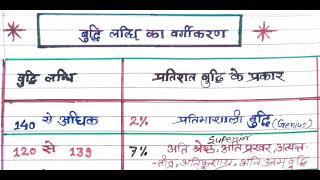 बुद्धि लब्धि का वर्गीकरण
बुद्धि लब्धि प्रतिशत बुद्धि के प्रकार
140 से अधिक 2% प्रतिभाशाली बुद्धि (Genius)
Superior
120 से 139 7% अति श्रेष्ठ, अति प्रखर, अत्यन्त
-तीव्र, अतिकुशाग्र, अति उत्तम बुद्धि